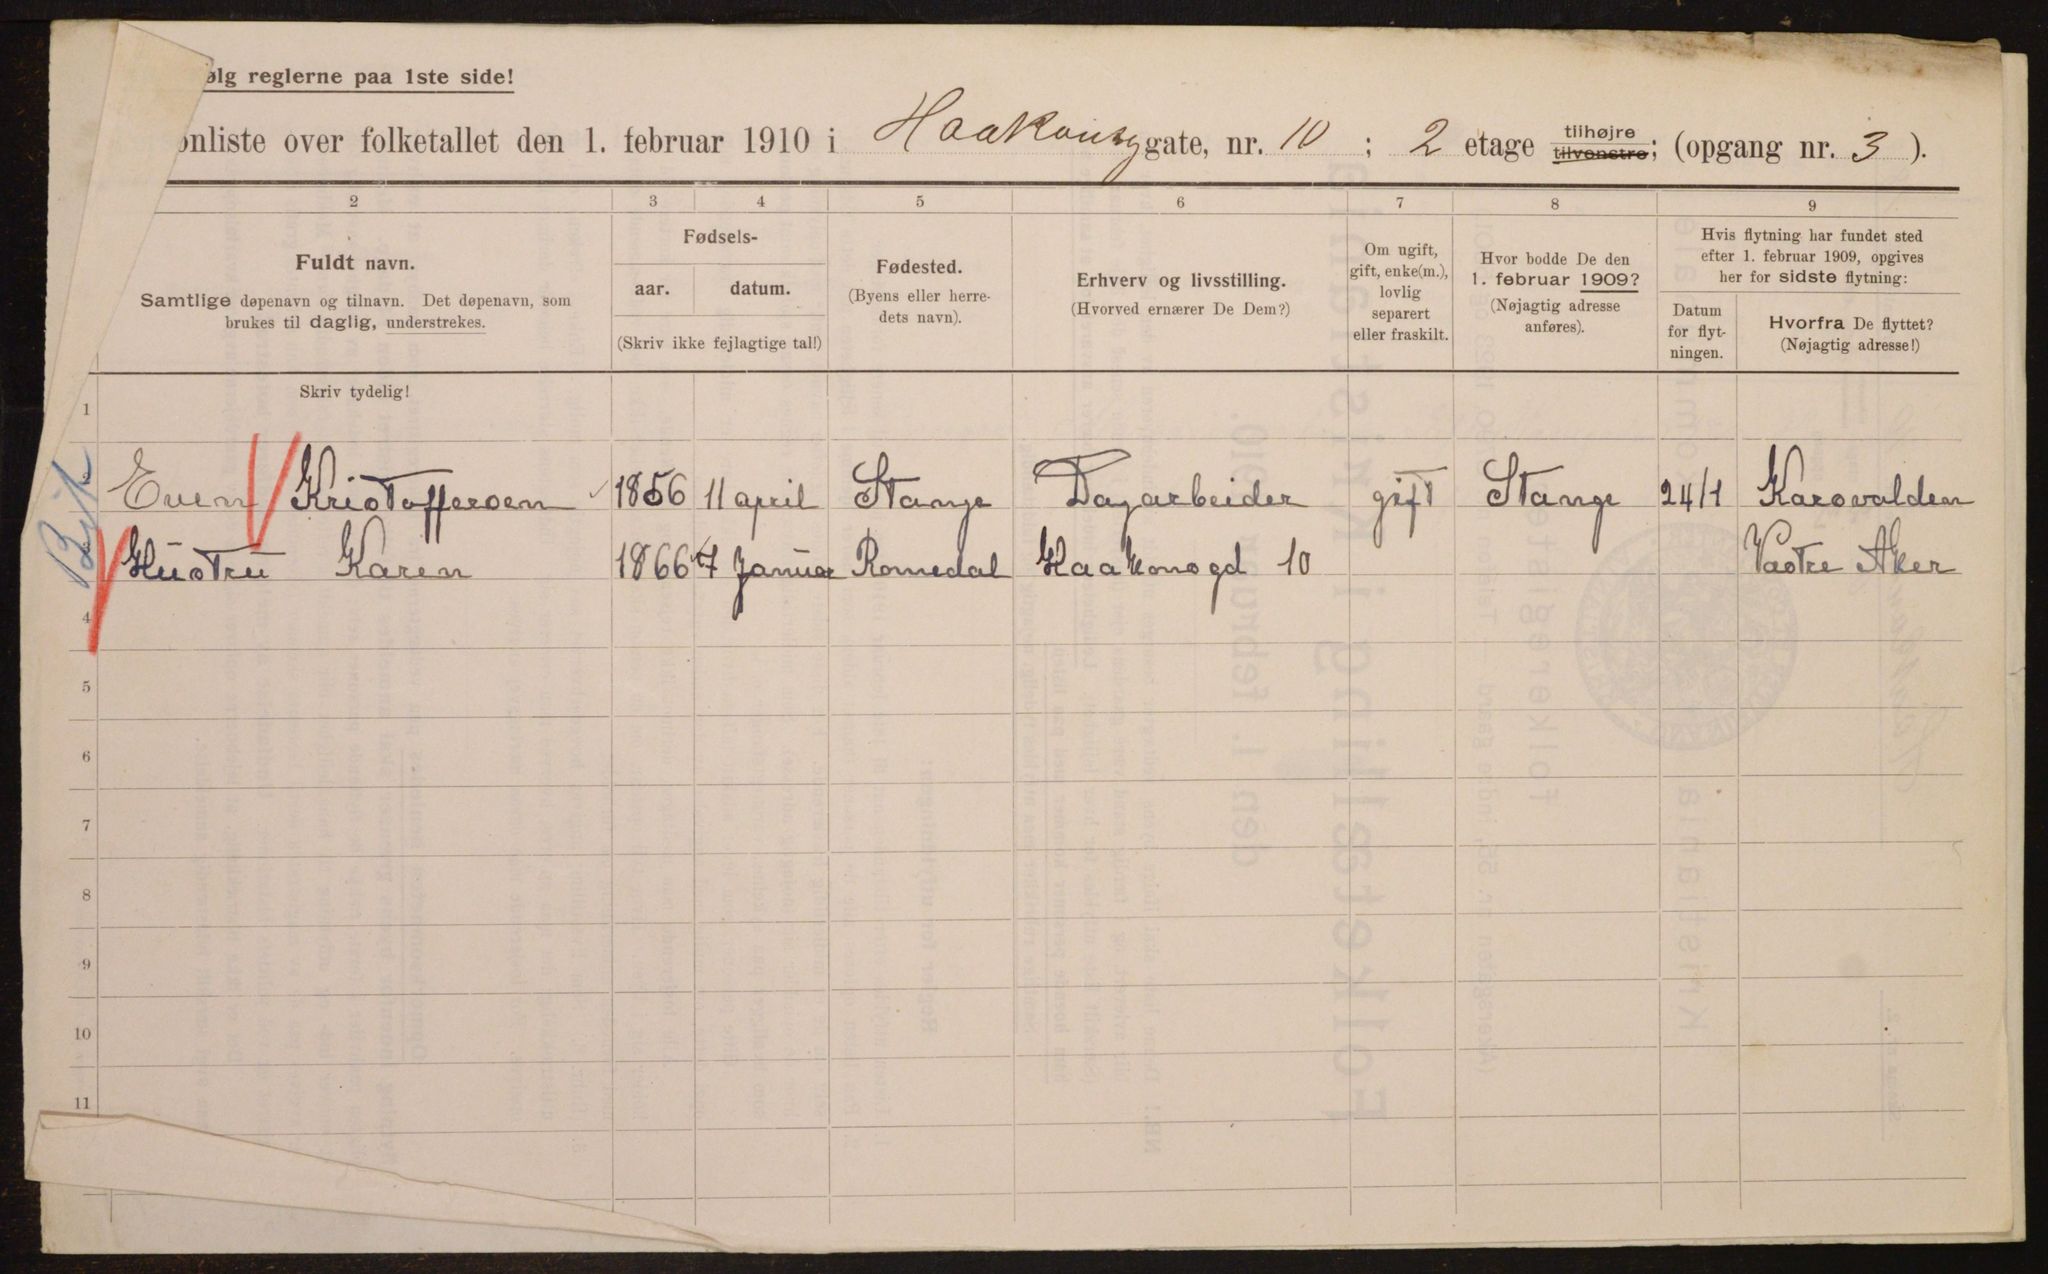 ølg reglerne paa 1ste side!
onliste over folketallet den 1. februar 1910 i Haakonsgate, nr. 10 ; 2 etage tilhøjre tilvenstre; (opgang nr. 3 ).
2 3 4 5 6 7 8 9
Fuldt navn.
Samtlige døpenavn og tilnavn. Det døpenavn, som
brukes til daglig, understrekes.
Fødsels-
aar. datum.
(Skriv ikke fejlagtige tal!)
Fødested.
(Byens eller herre-
dets navn).
Erhverv og livsstilling.
(Hvorved ernærer De Dem?)
Om ugift,
gift, enke(m.),
lovlig
separert
eller fraskilt.
Hvor bodde De den
1. februar 1909?
(Nøjagtig adresse
anføres).
Hvis flytning har fundet sted
efter 1. februar 1909, opgives
her for sidste flytning:
Datum
for flyt-
ningen.
Hvorfra De flyttet?
(Nøjagtig adresse!)
Skriv tydelig!
1
Even Kristoffersen 1856 11 april Stange Dagarbeider gift Stange 24/1 Karsvalden
Hustru Karen 1866 7 Januar Romedal Haakonsgd 10 Vestre Aker
4
5
6
7
8
9
10
11